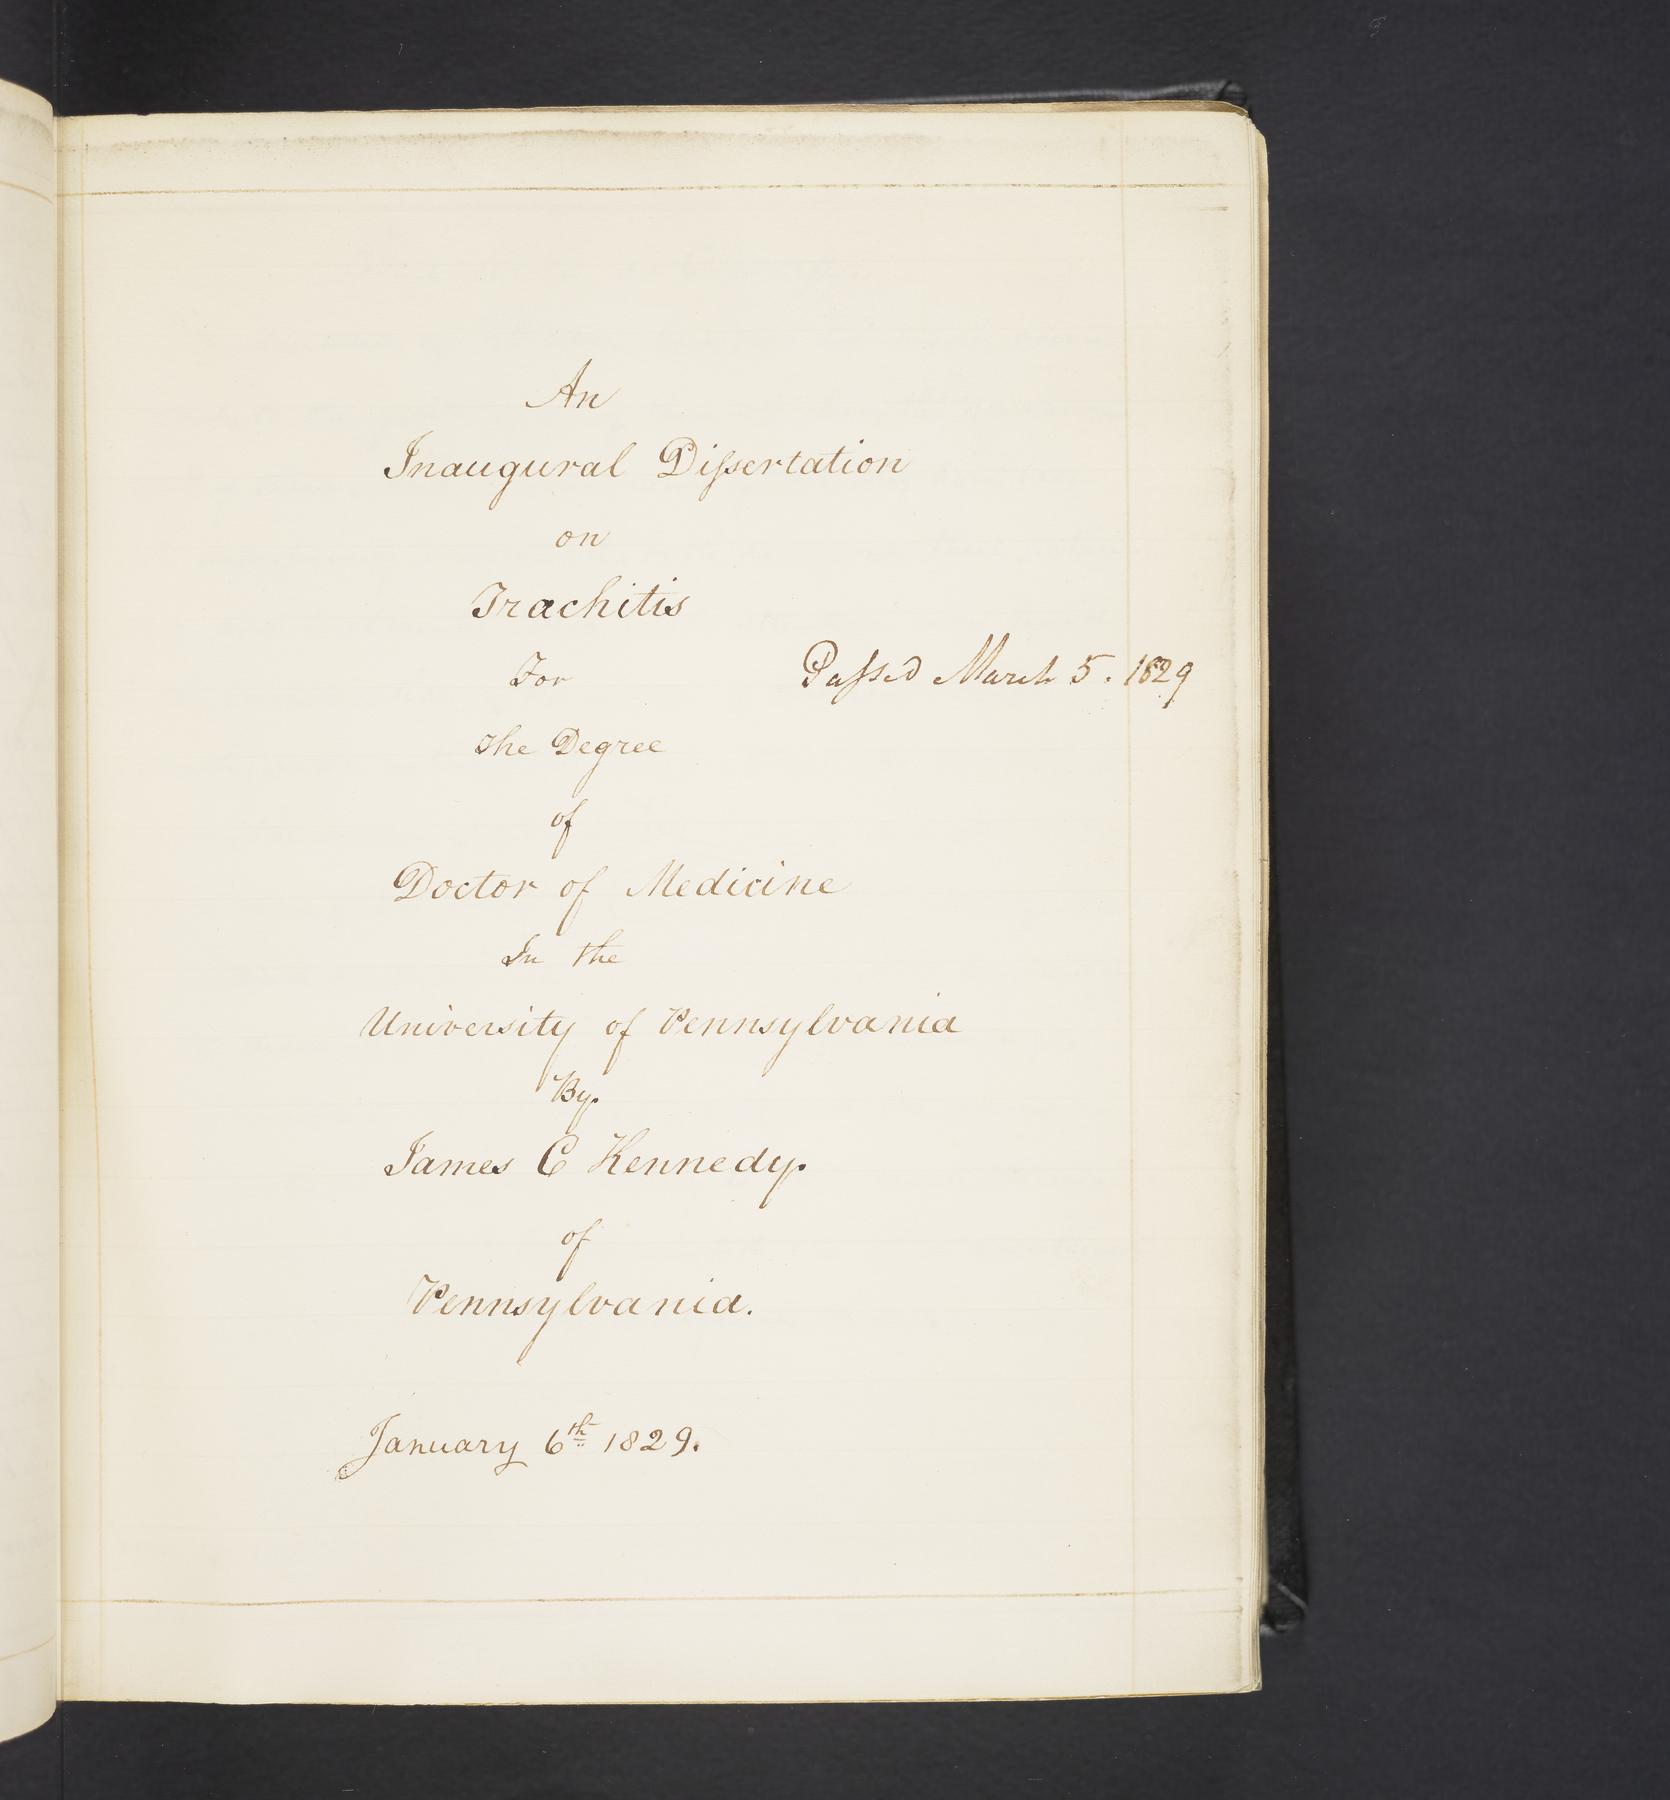 An
Inaugural Dissertation
on
Trachitis
For
Passed March 5. 1829
the Degree
of
Doctor of Medicine
In the
University of Pennsylvania
By.
James C Kennedy.
of
Pennsylvania.
January 6th 1829.